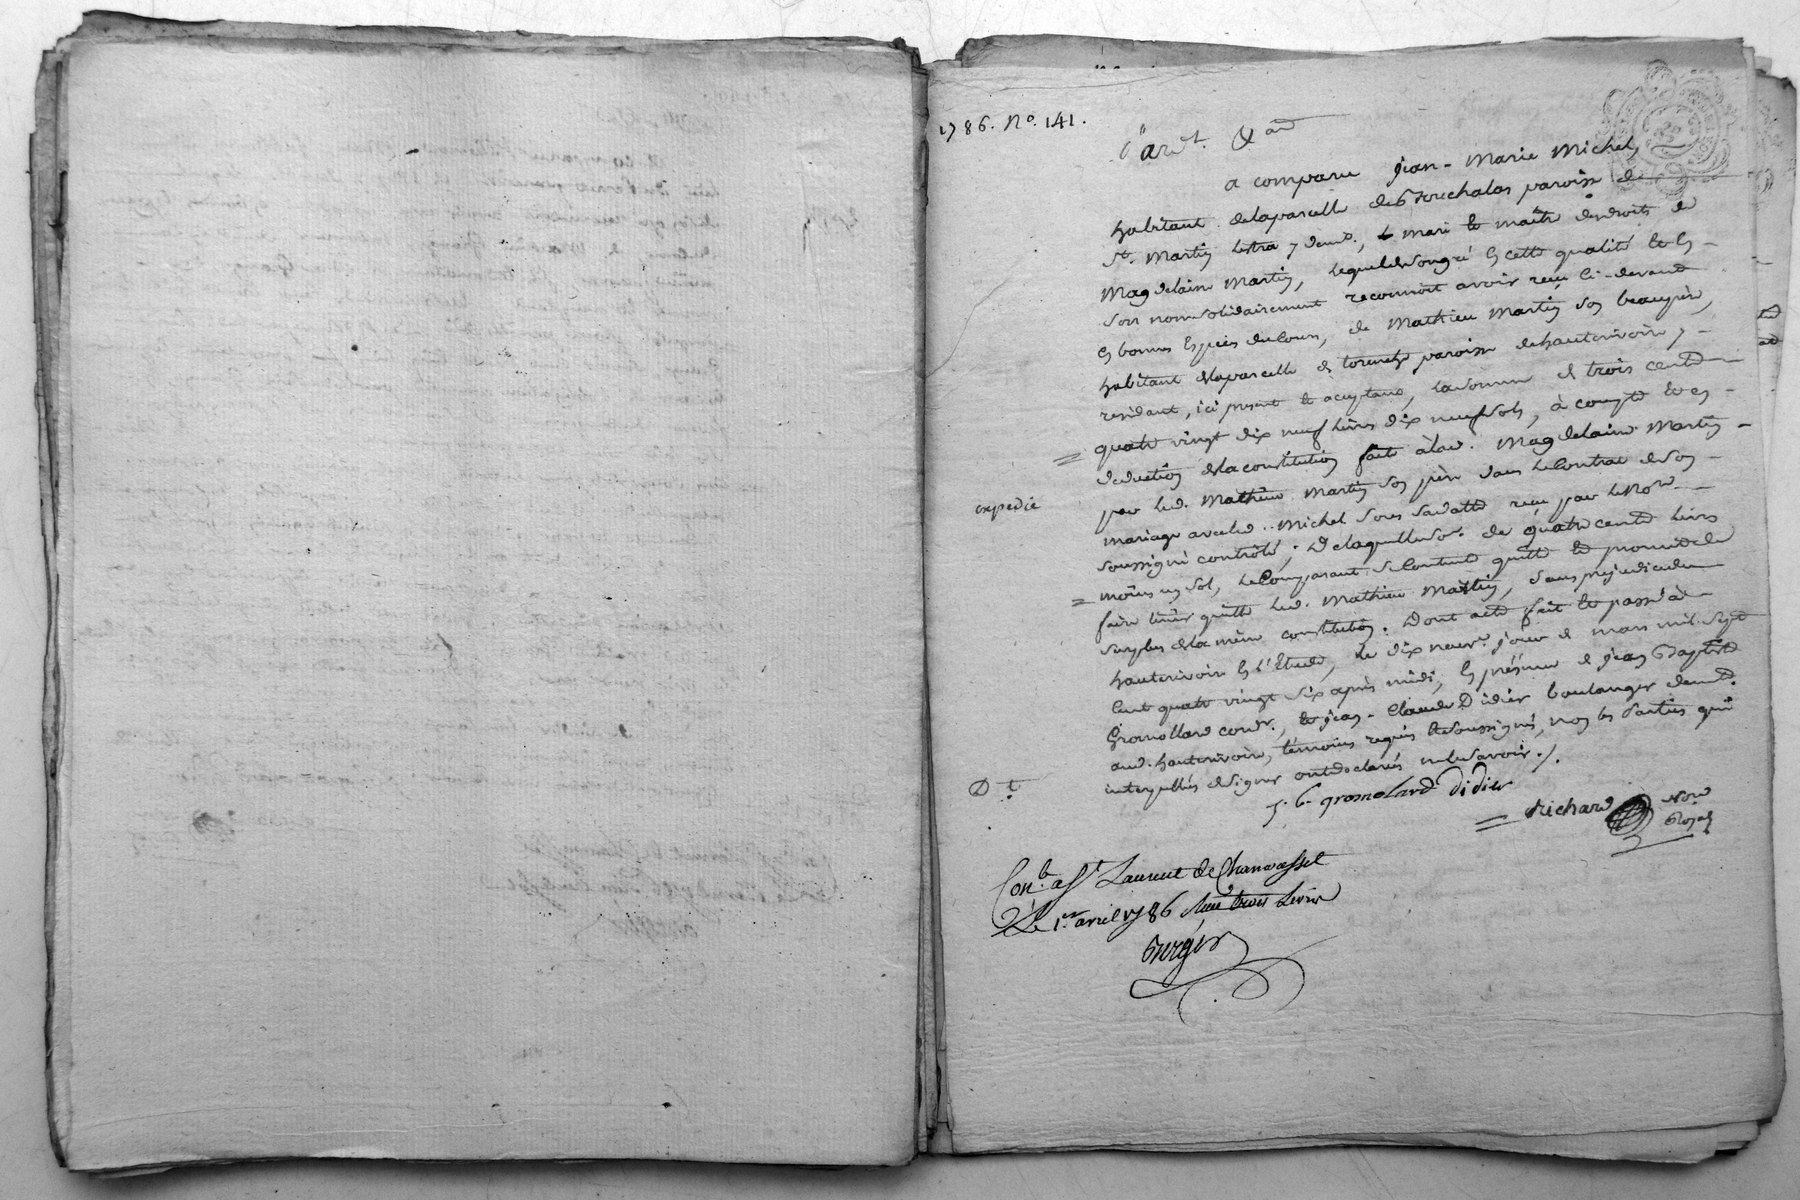 1786. No. 141.
Pardt. &a
a comparu jean-Marie Michel,
habitant delaparcelle des Bruchalas paroisse de
St. Martin Lestra y demt., mari et maitre desdroits de
Magdelaine Martin, lequeldesongré en cette qualité et en
son nomsolidairement reconnoit avoir reçu ci-devant
en bonnes Especes ducours, de Mathieu Martin son beaupère,
habitant delaparcelle de paroisse dehauterivoire y
residant, ici present et acceptant, lasomme de trois cent
quatre vingt dix neuf livres dix neuf sols, à compte et en
deduction delaconstitution faite àlad. Magdelaine Martin
par led. Mathieu Martin son père dans lecontrat deson
mariage avecled. Michel sous sadatte reçu par leNore
soussigné contrôlé; Delaquelleso. de quatre cent livres
moins un sol, lecomparant secontente quitte et prometde
faire tenir quitte led. Mathieu Martin, sans prejudicedu
surplus delamême constitution. Dont acte fait et passé à
hauterivoire en l'Etude, le dix neuv. jour de mars mil sept
cent quatre vingt six après midi, en présence de jean Baptiste
Gromollard cordr., et jean-Claude Didier boulanger demt.
aud. hauterivoire, témoins requis etsoussignés, non les parties qui
interpellés designer ontdeclarés nelesavoir./.
expedié
Dt
j. b. gromolard didier
Richard Nore
Royal
Conlé a St Laurent de Chamousset
Le 1er avril 1786 trois livres